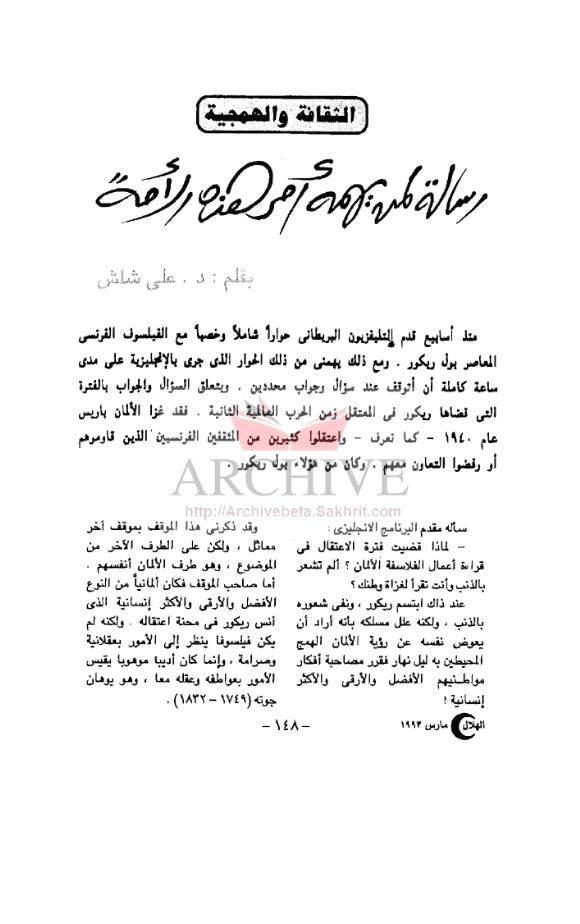 الثقافة والهمجية
رسالة لمن يهمه أمر هذه الأمة
بقلم : د . على شلش
منذ أسابيع قدم التليفزيون البريطانى حواراً شاملاً وخصباً مع الفيلسوف الفرنسى
المعاصر بول ريكور . ومع ذلك يهمنى من ذلك الحوار الذى جرى بالإنجليزية على مدى
ساعة كاملة أن أتوقف عند سؤال وجواب محددين . ويتعلق السؤال والجواب بالفترة
التى قضاها ريكور فى المعتقل زمن الحرب العالمية الثانية . فقد غزا الألمان باريس
عام ١٩٤٠ - كما نعرف - واعتقلوا كثيرين من المثقفين الفرنسيين الذين قاوموهم
أو رفضوا التعاون معهم . وكان من هؤلاء بول ريكور .
ARCHIVE
http://Archivebeta.Sakhrit.com
سأله مقدم البرنامج الانجليزى :
- لماذا قضيت فترة الاعتقال فى
قراءة أعمال الفلاسفة الألمان ؟ ألم تشعر
بالذنب وأنت تقرأ لغزاة وطنك ؟
عند ذاك ابتسم ريكور ، ونفى شعوره
بالذنب ، ولكنه علل مسلكه بأنه أراد أن
يعوض نفسه عن رؤية الألمان الهمج
المحيطين به ليل نهار فقرر مصاحبة أفكار
مواطنيهم الأفضل والأرقى والأكثر
إنسانية !
وقد ذكرنى هذا الموقف بموقف أخر
مماثل ، ولكن على الطرف الآخر من
الموضوع ، وهو طرف الألمان أنفسهم .
أما صاحب الموقف فكان ألمانياً من النوع
الأفضل والأرقى والأكثر إنسانية الذى
أنس ريكور فى محنة اعتقاله . ولكنه لم
يكن فيلسوفا ينظر إلى الأمور بعقلانية
وصرامة ، وإنما كان أديبا موهوبا يقيس
الأمور بعواطفه وعقله معا ، وهو يوهان
جوته (١٧٤٩ - ١٨٣٢) .
الهلال مارس ١٩٩٣
- ١٤٨ -